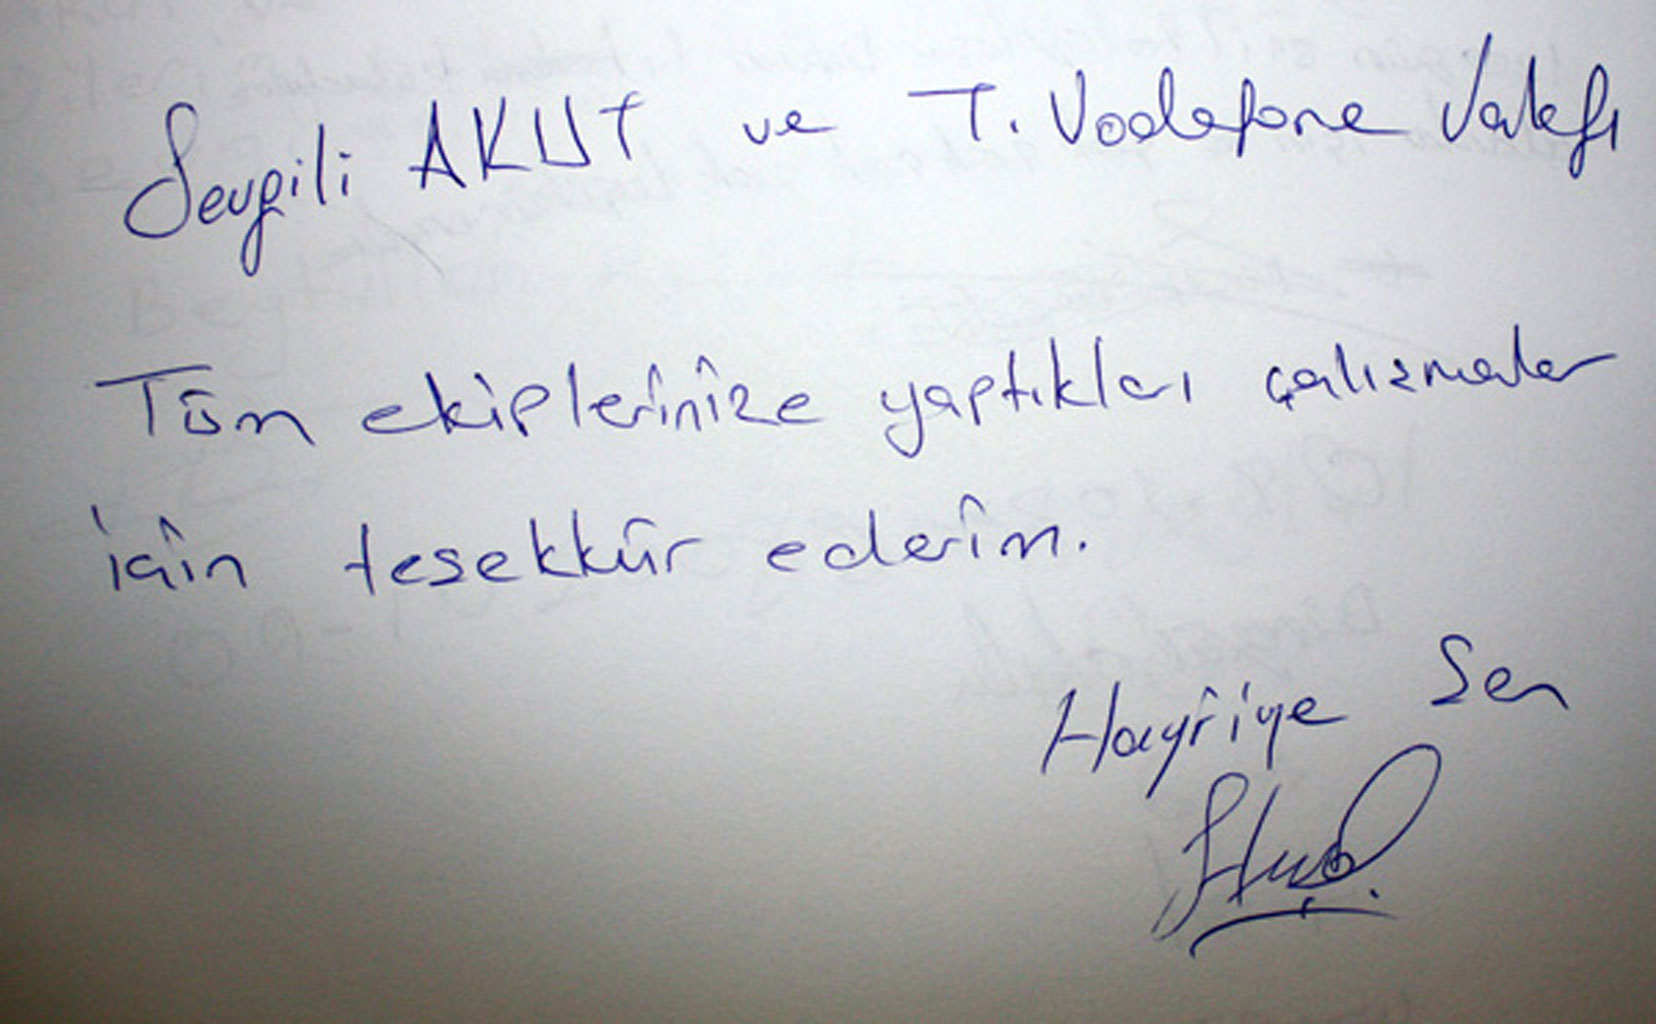 Sevgili AKUT ve T. Vodafone Vakfı
Tüm ekiplerinize yaptıkları çalışmalar
için teşekkür ederim.
Hayriye Sen